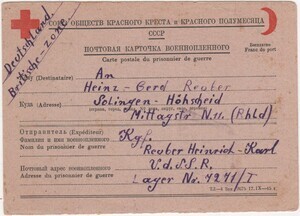 СОЮЗ ОБЩЕСТВ КРАСНОГО КРЕСТА и КРАСНОГО ПОЛУМЕСЯЦА
СССР
Deutschland
Britische-Zone
ПОЧТОВАЯ КАРТОЧКА ВОЕННОПЛЕННОГО
Carte postale du prisonnier de guerre
Бесплатно
Franc de port
Кому (Destinataire) An
Heinz-Gerd Reuter
Куда (Adresse) Solingen-Höhscheid
Mittagstr N.11. (Rhld)
Отправитель (Expéditeur) Kgf.
Фамилия и имя военнопленного
Reuter Heinrich-Karl
Почтовый адрес военнопленного U.d.S.S.R.
Adresse du prisonnier de guerre
Lager Nr. 7271/I